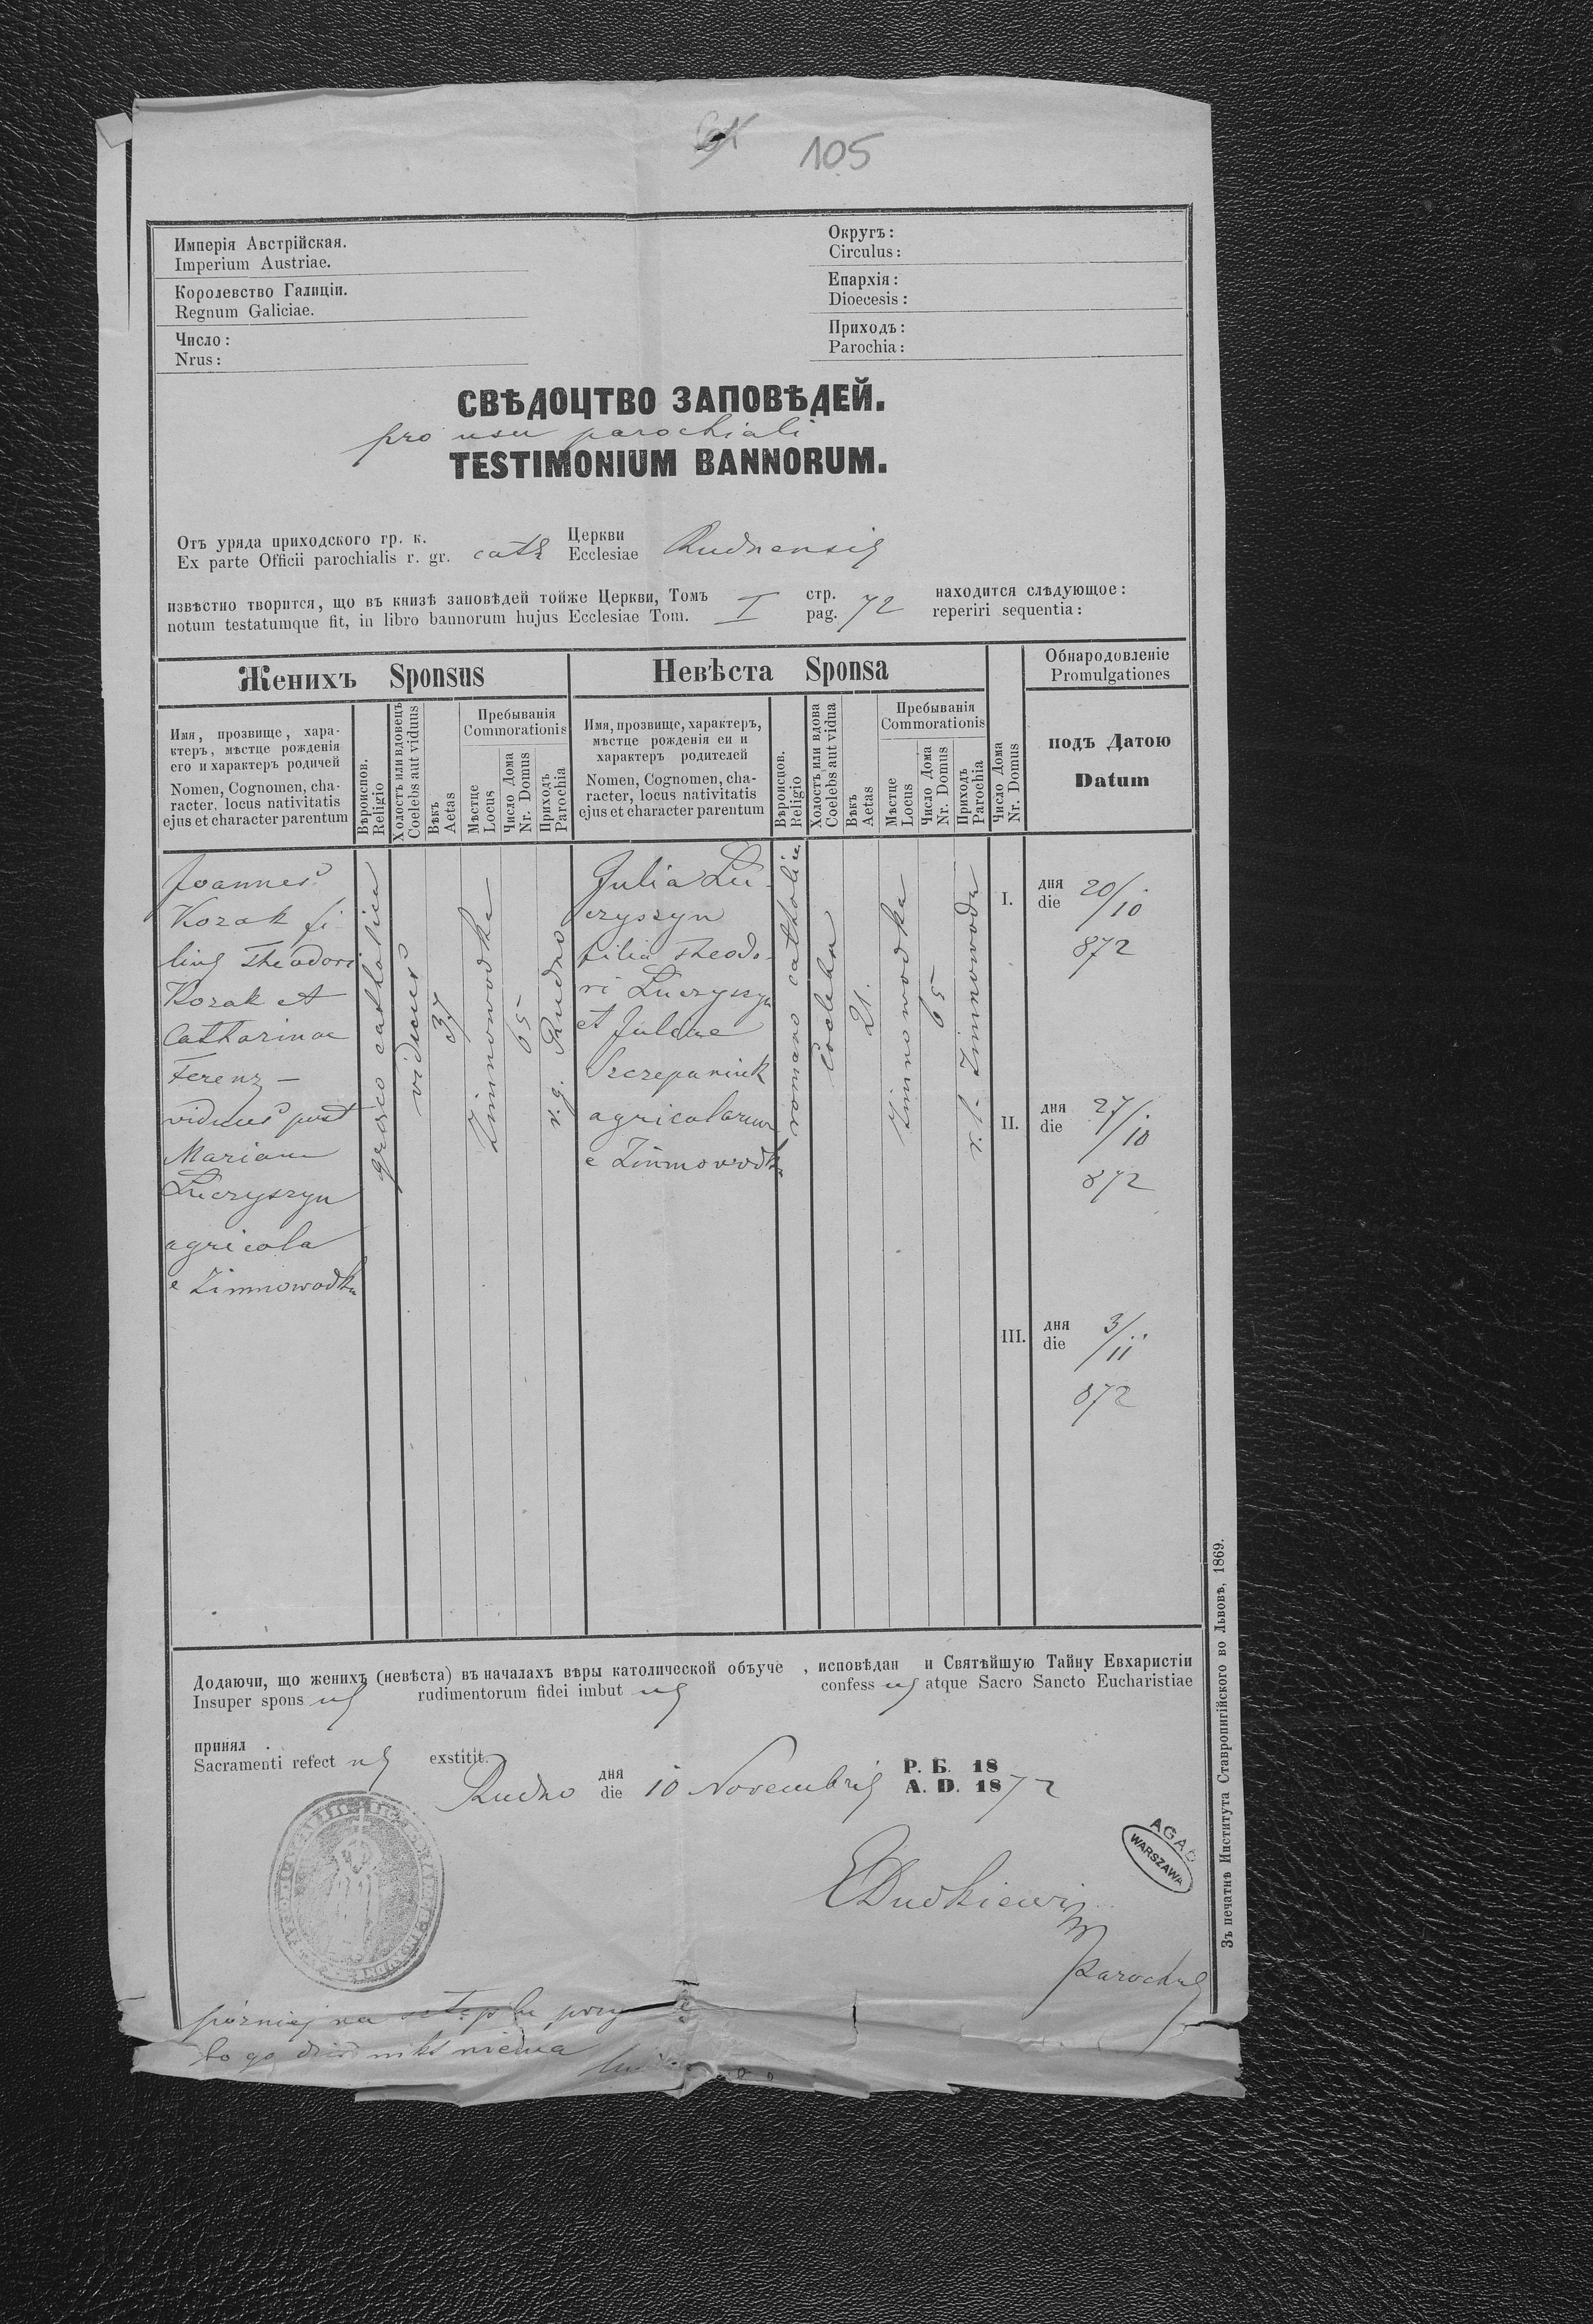 105
Имперія Австрійская.
Imperium Austriae.
Королевство Галиціи.
Regnum Galiciae.
Число:
Nrus:
Округъ:
Circulus:
Епархія:
Dioecesis:
Приходъ:
Parochia:
СВѢДОЦТВО ЗАПОВѢДЕЙ.
pro usu parochiali
TESTIMONIUM BANNORUM.
Отъ уряда приходского гр. к. Церкви
Ex parte Officii parochialis r. gr. cath Ecclesiae Rudnensis
извѣстно творится, що въ книзѣ заповѣдей тойже Церкви, Томъ стр. находится слѣдующое:
notum testatumque fit, in libro bannorum hujus Ecclesiae Tom. I pag. 72 reperiri sequentia:
Женихъ Sponsus
Невѣста Sponsa
Обнародовленіе
Promulgationes
Имя, прозвище, хара-
ктеръ, мѣстце рожденія
его и характеръ родичей
Nomen, Cognomen, cha-
racter, locus nativitatis
ejus et character parentum
Вѣроиспов.
Religio
Холостъ или вдовецъ
Coelebs aut viduus
Вѣкъ
Aetas
Пребыванія
Commorationis
Мѣстце
Locus
Число Дома
Nr. Domus
Приходъ
Parochia
Имя, прозвище, характеръ,
мѣстце рожденія еи и
характеръ родителей
Nomen, Cognomen, cha-
racter, locus nativitatis
ejus et character parentum
Вѣроисцов.
Religio
Холостъ или вдова
Coelebs aut vidua
Вѣкъ
Aetas
Пребыванія
Commorationis
Мѣстце
Locus
Число Дома
Nr. Domus
Приходъ
Parochia
Число Дома
Nr. Domus
подъ Датою
Datum
Joannes
Kozak fi-
lius Theodori
Kozak et
Catharinae
Ferenz –
viduus post
Mariam
Luczyszyn
agricola
e Zimnowodka
graeco catholica
viduus
37
Zimnowodka
65
r. g. Rudno
Julia Lu-
czyszyn
filia Theodo-
ri Luczyszyn
et Juliae
Szczepaniuk
agricolarum
e Zimnowodka
romano catholica
Coelebs
21.
Zimnowodka
65
r. l. Zimnowoda
I. дня
die 20/10
872
II. дня
die 27/10
872
III. дня
die 3/11
872
Додаючи, що женихъ (невѣста) въ началахъ вѣры католической объуче , исповѣдан и Святѣйшую Тайну Евхаристіи
Insuper spons us rudimentorum fidei imbut us confess us atque Sacro Sancto Eucharistiae
принял .
Sacramenti refect us exstitit.
Rudno дня Р. Б. 18
die 10 Novembris A. D. 1872
EDudkiewicz
Parochus
AGAD
WARSZAWA
później na
bo go dziś nikt niema
Зъ печатнѣ Института Ставропигійского во Львовѣ, 1869.